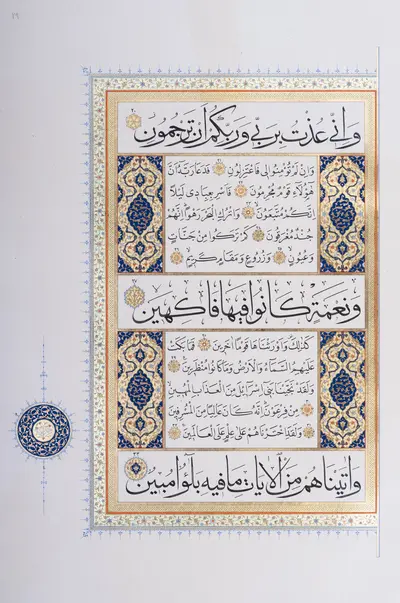 وَإِنِّي عُذْتُ بِرَبِّي وَرَبِّكُمْ أَنْ تَرْجُمُونِ ٢٠
وَإِنْ لَمْ تُؤْمِنُوا لِي فَاعْتَزِلُونِ فَدَعَا رَبَّهُ أَنَّ
هَؤُلَاءِ قَوْمٌ مُجْرِمُونَ فَأَسْرِ بِعِبَادِي لَيْلًا
إِنَّكُمْ مُتَّبَعُونَ وَاتْرُكِ الْبَحْرَ رَهْوًا إِنَّهُمْ
جُنْدٌ مُغْرَقُونَ كَمْ تَرَكُوا مِنْ جَنَّاتٍ
وَعُيُونٍ وَزُرُوعٍ وَمَقَامٍ كَرِيمٍ
وَنَعْمَةٍ كَانُوا فِيهَا فَاكِهِينَ
كَذَلِكَ وَأَوْرَثْنَاهَا قَوْمًا آخَرِينَ فَمَا بَكَتْ
عَلَيْهِمُ السَّمَاءُ وَالْأَرْضُ وَمَا كَانُوا مُنْظَرِينَ
وَلَقَدْ نَجَّيْنَا بَنِي إِسْرَائِيلَ مِنَ الْعَذَابِ الْمُهِينِ
مِنْ فِرْعَوْنَ إِنَّهُ كَانَ عَالِيًا مِنَ الْمُسْرِفِينَ
وَلَقَدِ اخْتَرْنَاهُمْ عَلَى عِلْمٍ عَلَى الْعَالَمِينَ
وَآتَيْنَاهُمْ مِنَ الْآيَاتِ مَا فِيهِ بَلَؤٌا مُبِينٌ ٣٣